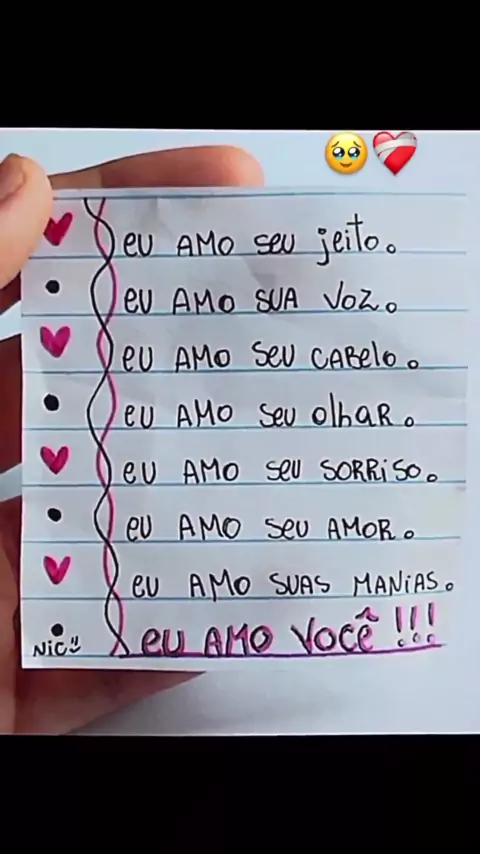 eu AMO seu jeito.
eu AMO SUA VOZ.
eu AMO seu CABelo.
eu AMO seu olhAR.
eu AMO seu SORRiSO.
eu AMO seu AMOR.
eu AMO SUAS MANiAS.
eu AMO VOCÊ !!!
NiC